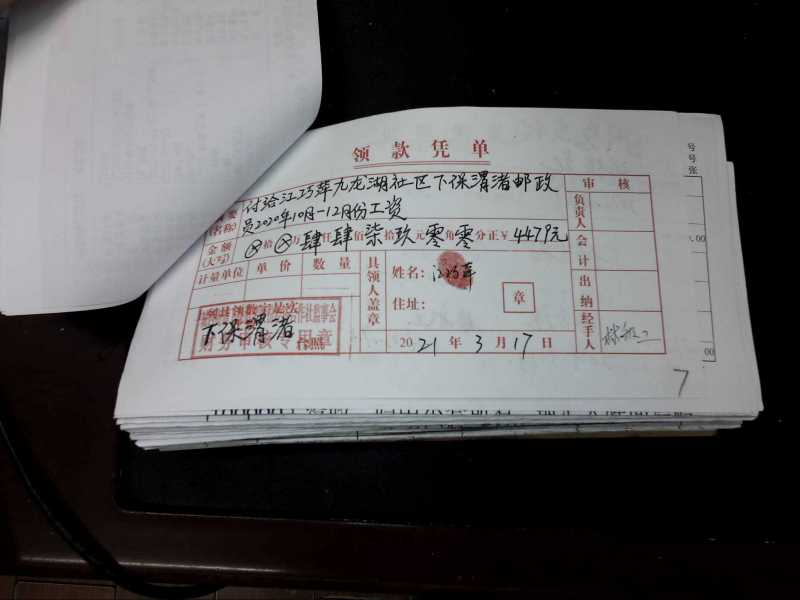 领款凭单
付给江巧萍九龙湖社区下保渭渚邮政
员2020年10月-12月份工资
(名称)
审核
负责人
金额
(大写)
⊗拾⊗万肆仟肆佰柒拾玖元零角零分正¥4479元
会计
计量单位 单价 数量
具领人盖章
姓名:江巧萍
住址:
章
出纳
下保渭渚
财务审核专用章
2021年3月17日
经手人
7
号号张
00
00